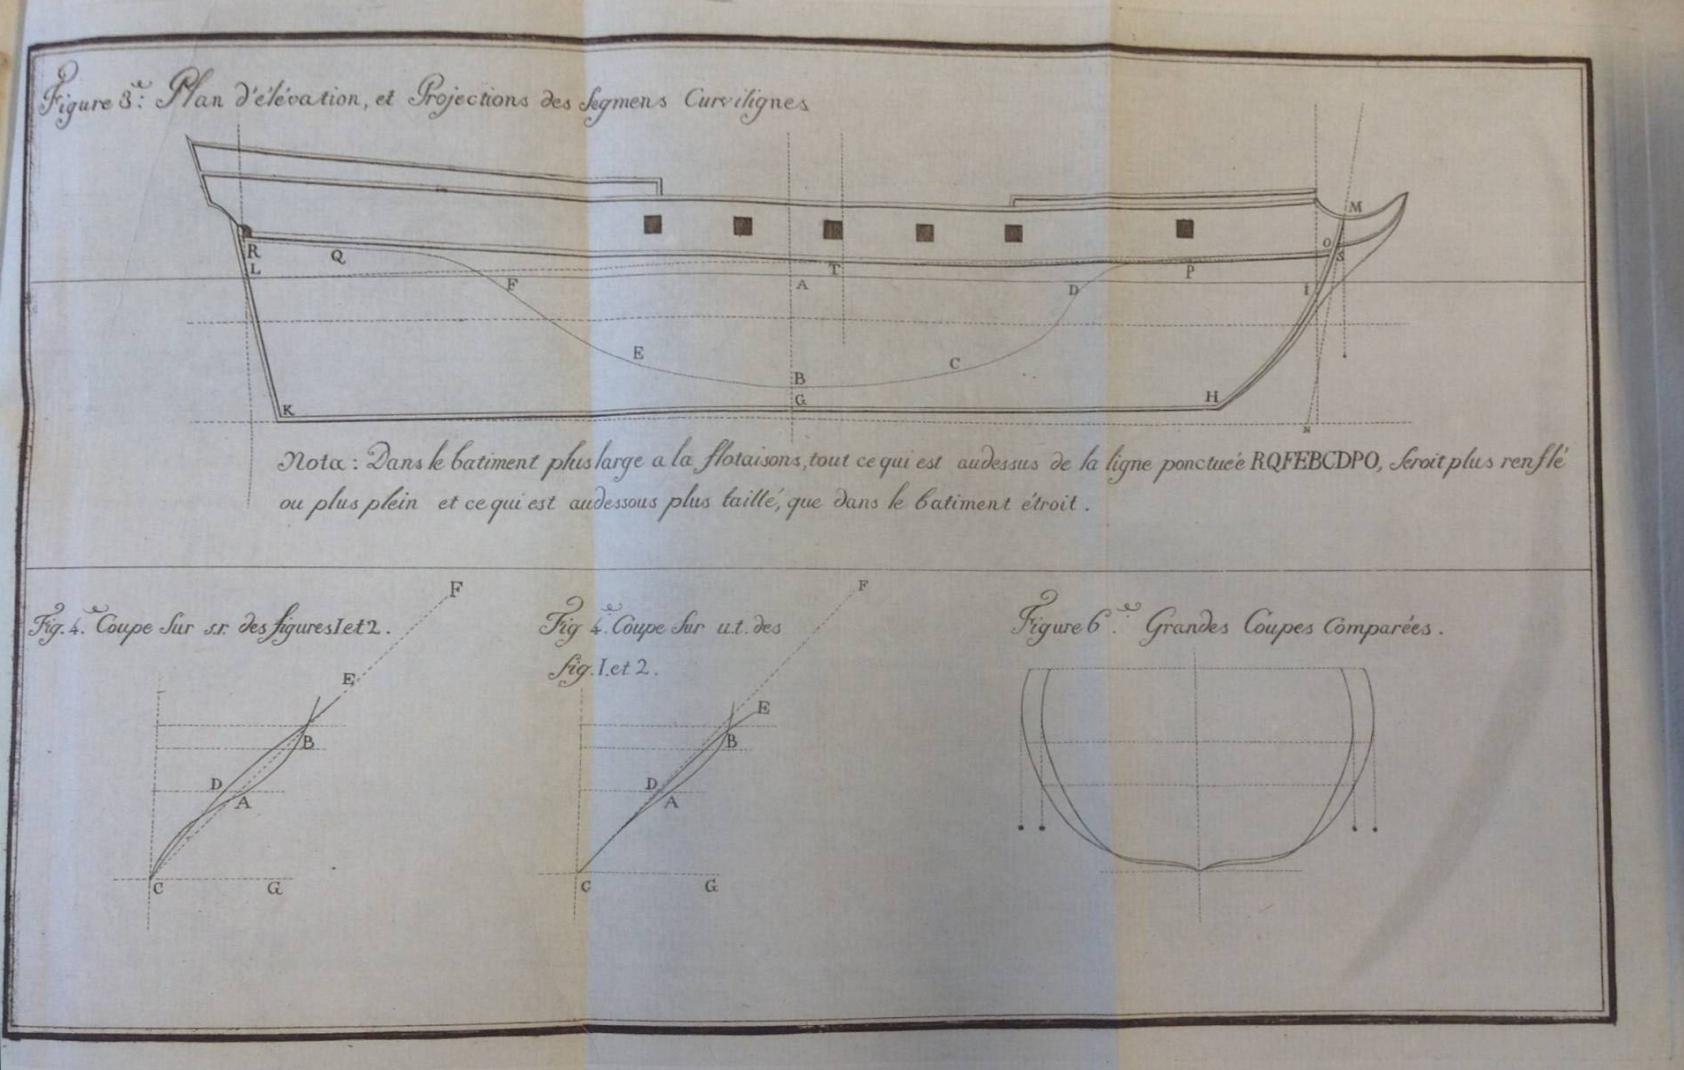 Figure 3.e Plan d'élévation, et Projections des Segmens Curvilignes
M
R
Q
L
F
A
T
D
P
O
S
I
E
B
C
G
K
H
N
Nota : Dans le batiment plus large a la flotaisons, tout ce qui est audessus de la ligne ponctuée RQFEBCDPO, seroit plus renflé
ou plus plein et ce qui est audessous plus taillé, que dans le batiment étroit.
Fig. 4.e Coupe Sur s.r. des figures I et 2.
F
E
B
D
A
C
G
Fig 4.e Coupe Sur u.t. des
fig. I. et 2.
F
E
B
D
A
C
G
Figure 6.e Grandes Coupes Comparées.